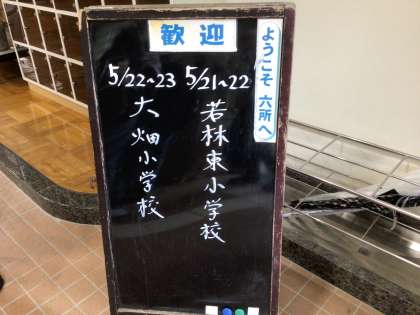 歓迎
ようこそ 六所へ
5/21~22
若林東小学校
5/22~23
大畑小学校